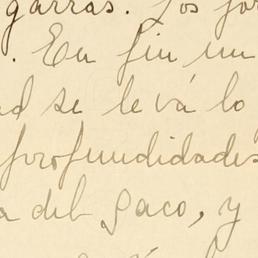 garras. Los for
. En fin un
ad se levá lo
profundidades
a del Saco, y